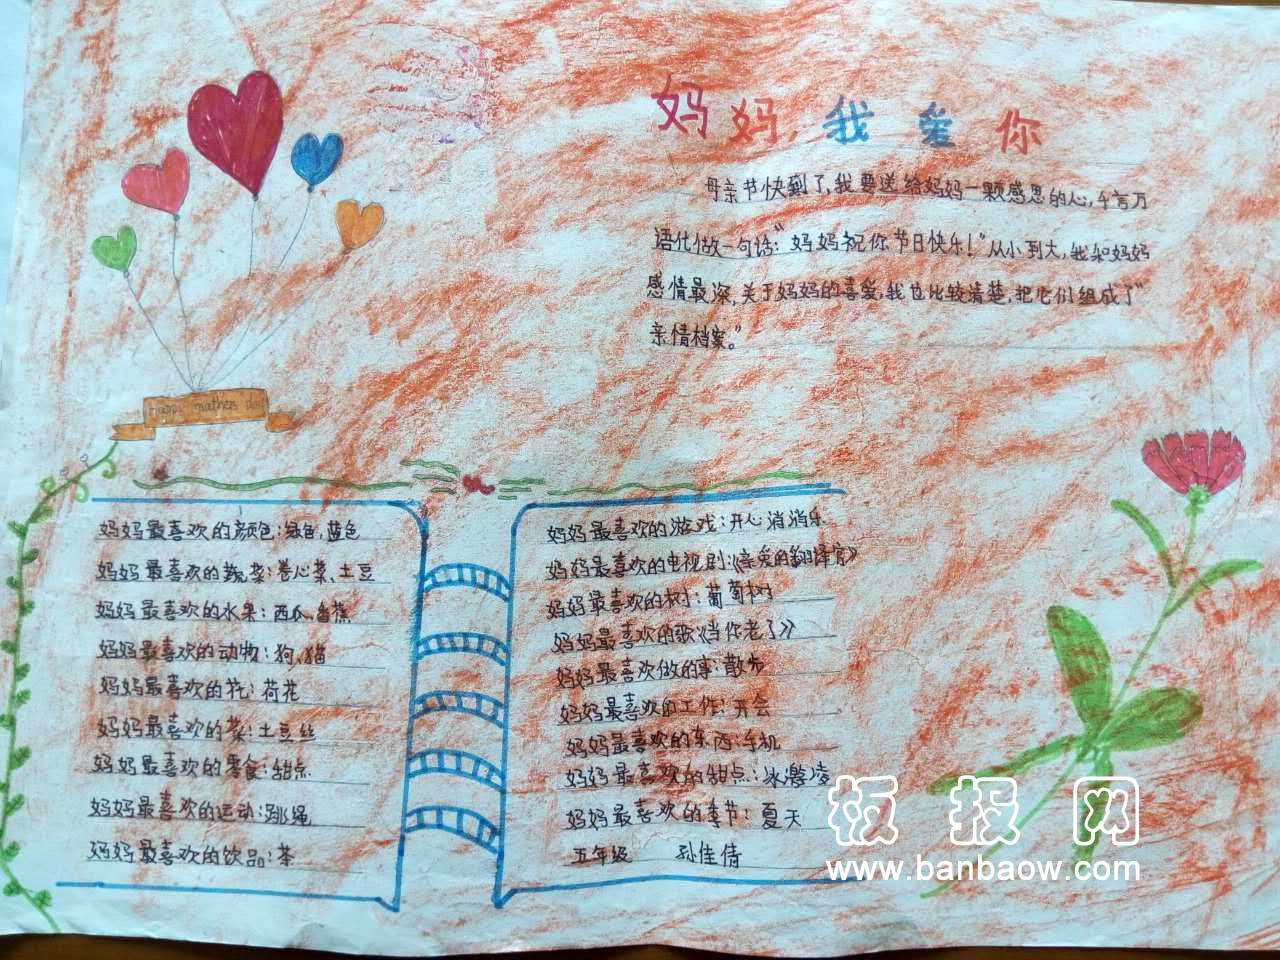 妈妈,我爱你
母亲节快到了,我要送给妈妈一颗感恩的心,千言万
语化做一句话:“妈妈祝你节日快乐!”从小到大,我和妈妈
感情最深,关于妈妈的喜爱,我也比较清楚,把它们组成了“
亲情档案。”
Happy mothers day
妈妈最喜欢的颜色:绿色,蓝色
妈妈最喜欢的蔬菜:卷心菜、土豆
妈妈最喜欢的水果:西瓜、香蕉
妈妈最喜欢的动物:狗,猫
妈妈最喜欢的花:荷花
妈妈最喜欢的菜:土豆丝
妈妈最喜欢的零食:甜点
妈妈最喜欢的运动:跳绳
妈妈最喜欢的饮品:茶
妈妈最喜欢的游戏:开心消消乐
妈妈最喜欢的电视剧:《亲爱的翻译官》
妈妈最喜欢的树:葡萄树
妈妈最喜欢的歌《当你老了》
妈妈最喜欢做的事:散步
妈妈最喜欢的工作:开会
妈妈最喜欢的东西:手机
妈妈最喜欢的甜点:冰激凌
妈妈最喜欢的季节:夏天
五年级 孙佳倚
板报网
www.banbaow.com